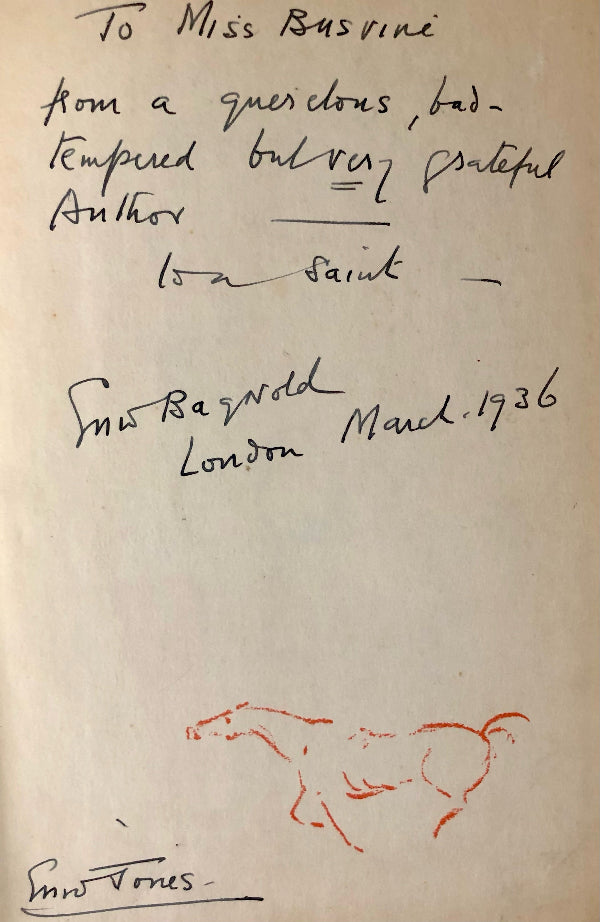 To Miss Busvine
from a querelous, bad-
tempered but very grateful
Author
to a Saint
Enid Bagnold
London March. 1936
Enid Jones-